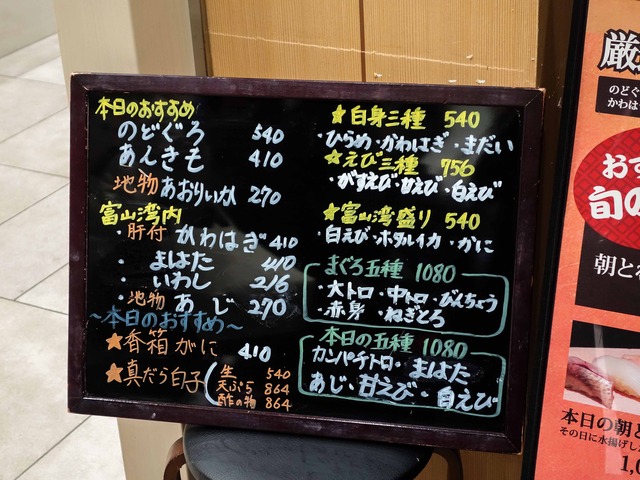 本日のおすすめ
のどぐろ 540
あんきも 410
地物 あおりいか 270
富山湾内
・肝付 かわはぎ 410
・ まはた 410
・ いわし 216
・地物 あじ 270
～本日のおすすめ～
★香箱がに 410
★真だら白子
生 540
天ぷら 864
酢の物 864
★白身三種 540
・ひらめ・かわはぎ・まだい
★えび三種 756
・がすえび・甘えび・白えび
★富山湾盛り 540
・白えび・ホタルイカ・かに
まぐろ五種 1080
・大トロ・中トロ・びんちょう
・赤身・ねぎとろ
本日の五種 1080
カンパチトロ・まはた
あじ・甘えび・白えび
厳
のどぐ
かわは
おす
旬の
朝と
本日の朝と
その日に水揚げし
1,0